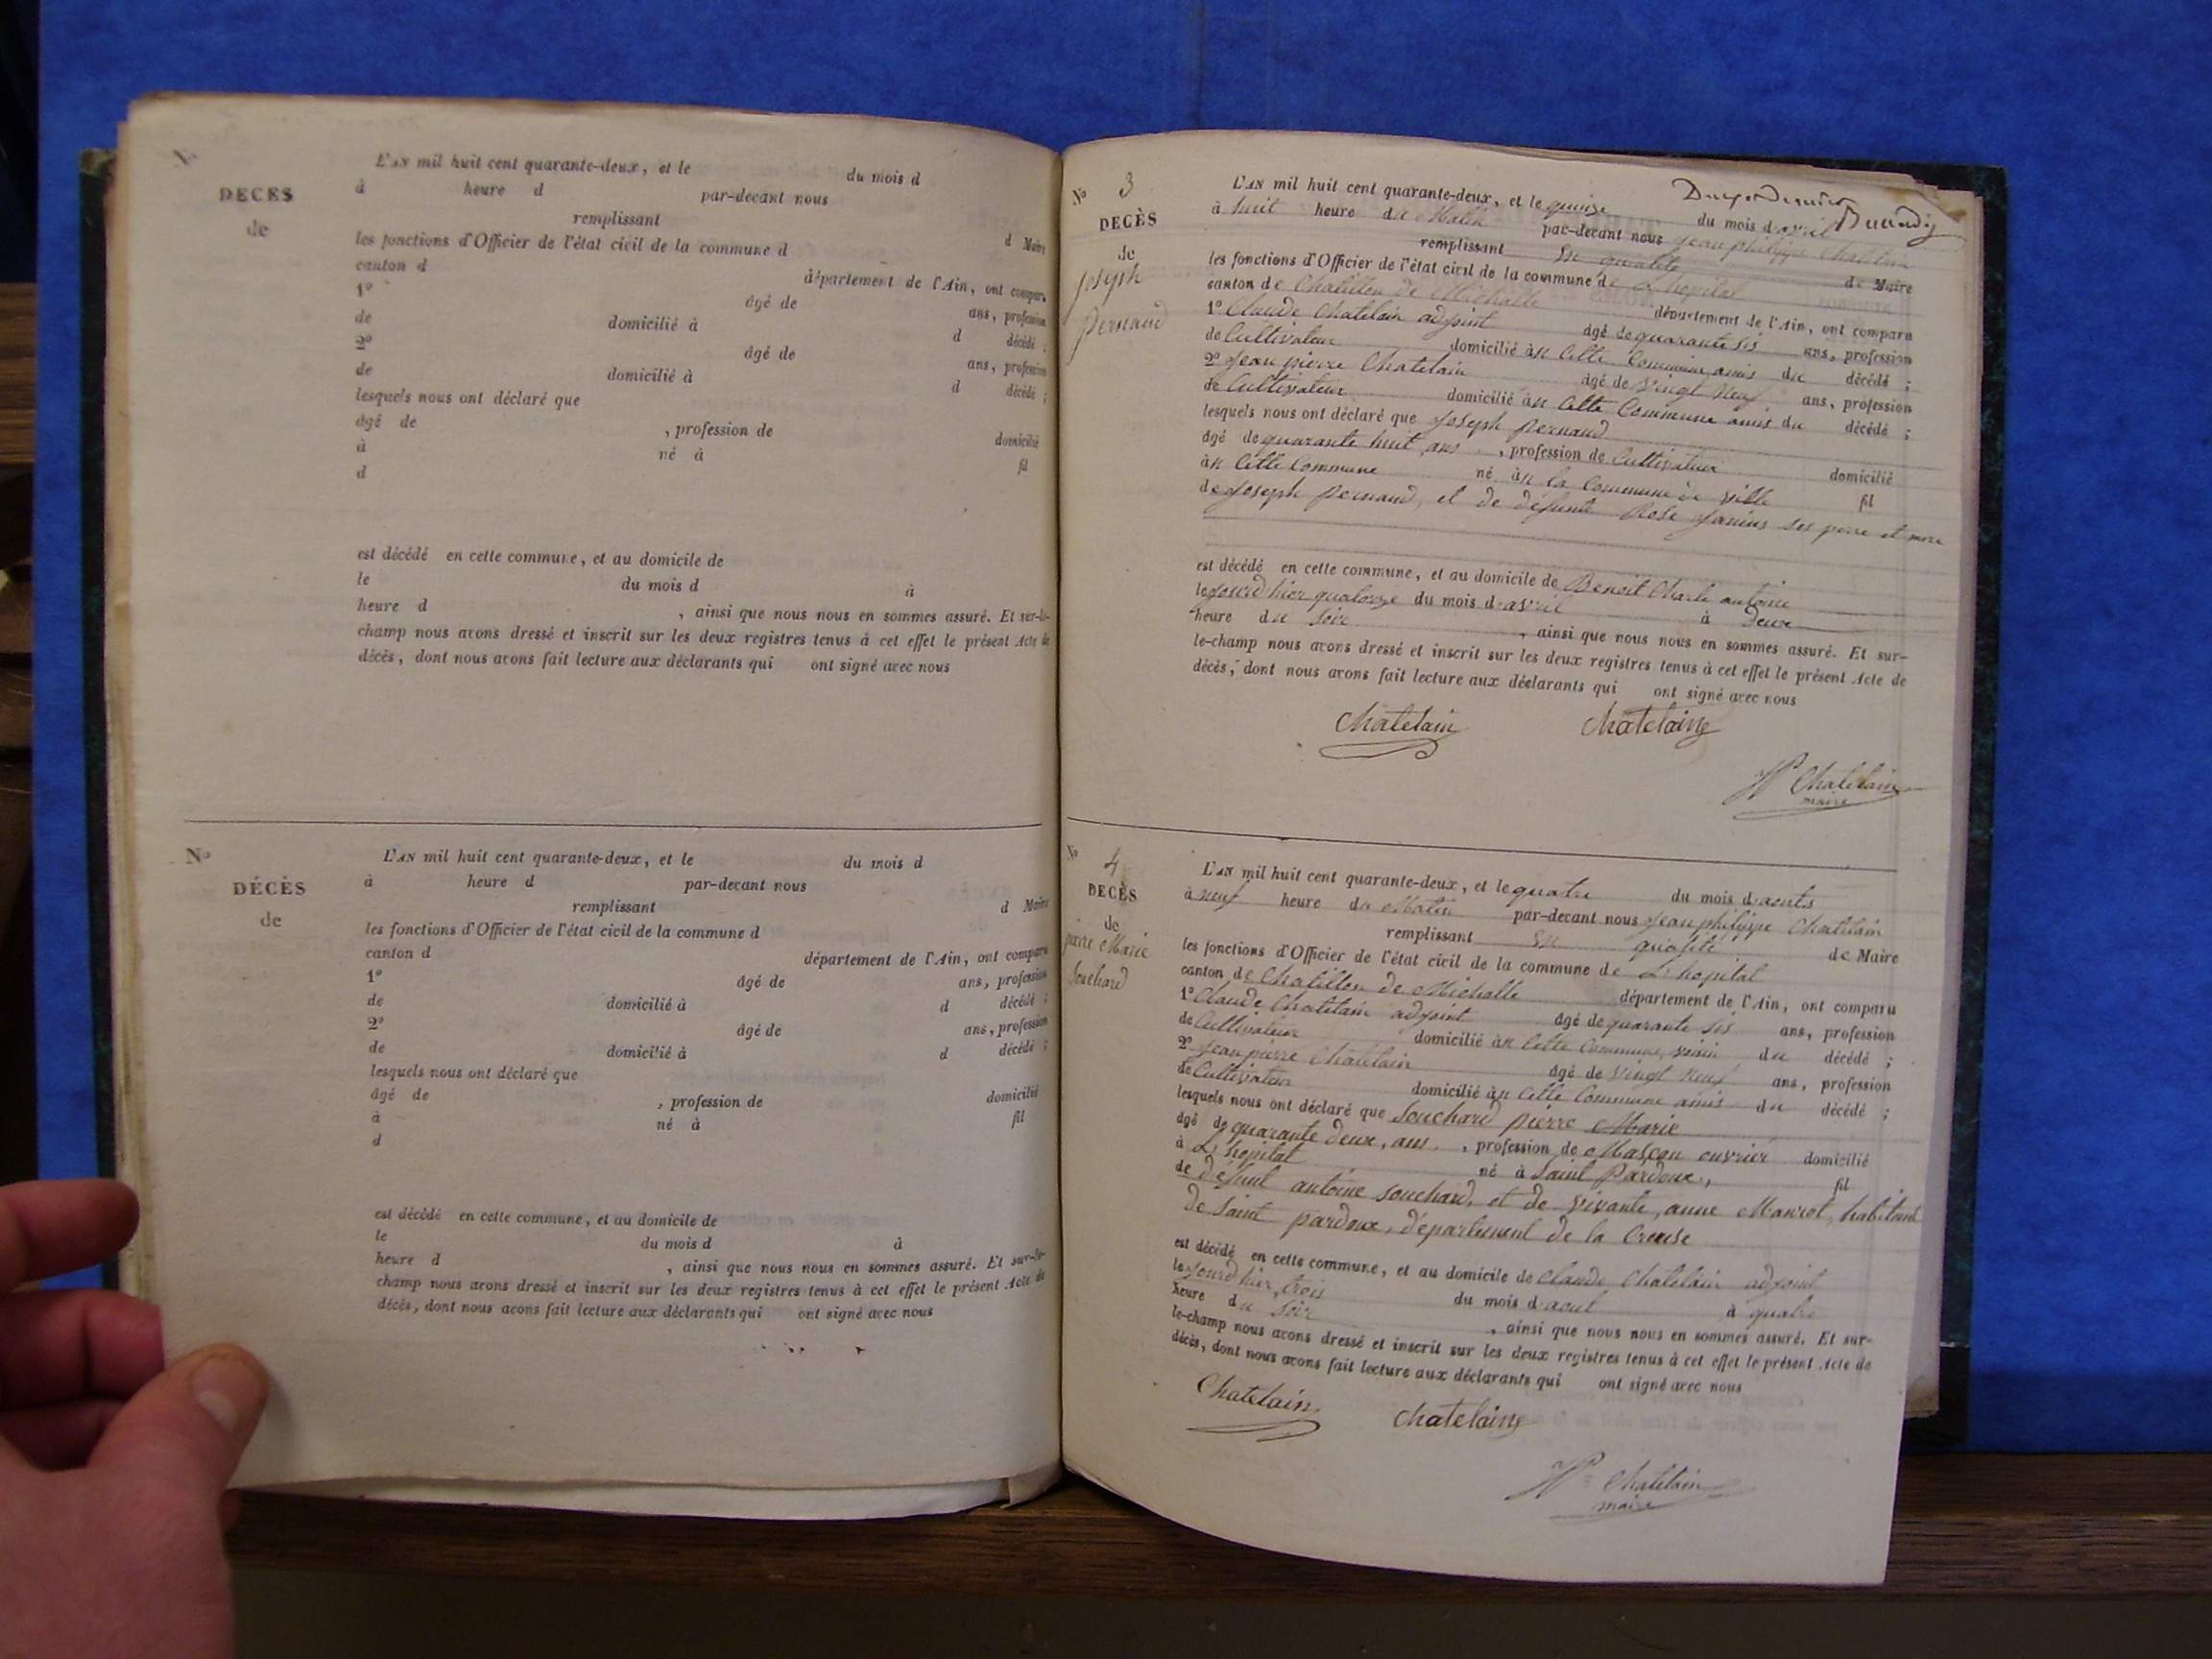 N°
L'AN mil huit cent quarante-deux, et le du mois d
DECES
à heure d par-devant nous
de
remplissant d Maire
les fonctions d'Officier de l'état civil de la commune d
canton d département de l'Ain, ont comparu
1° âgé de ans, profession
de domicilié à d décédé ;
2° âgé de ans, profession
de domicilié à d décédé ;
lesquels nous ont déclaré que
âgé de , profession de domicilié
à né à fil
d
est décédé en cette commune, et au domicile de
le du mois d à
heure d , ainsi que nous nous en sommes assuré. Et sur-le-
champ nous avons dressé et inscrit sur les deux registres tenus à cet effet le présent Acte de
décès, dont nous avons fait lecture aux déclarants qui ont signé avec nous
N°
L'AN mil huit cent quarante-deux, et le du mois d
DÉCÈS
à heure d par-devant nous
de
remplissant d Maire
les fonctions d'Officier de l'état civil de la commune d
canton d département de l'Ain, ont comparu
1° âgé de ans, profession
de domicilié à d décédé ;
2° âgé de ans, profession
de domicilié à d décédé ;
lesquels nous ont déclaré que
âgé de , profession de domicilié
à né à fil
d
est décédé en cette commune, et au domicile de
le du mois d à
heure d , ainsi que nous nous en sommes assuré. Et sur-le-
champ nous avons dressé et inscrit sur les deux registres tenus à cet effet le présent Acte de
décès, dont nous avons fait lecture aux déclarants qui ont signé avec nous
N° 3
DECÈS
de
joseph
pernaud
L'AN mil huit cent quarante-deux, et le quinze du mois d'avril
à huit heure du Matin par-devant nous jean philippe Chatelain
remplissant En qualité de Maire
les fonctions d'Officier de l'état civil de la commune de L'hopital
canton de Chatillon de Michaille département de l'Ain, ont comparu
1° Claude Chatelain adjoint âgé de quarante sis ans, profession
de Cultivateur domicilié àn Cette Commune amis du décédé ;
2° jean pierre Chatelain âgé de vingt neuf ans, profession
de Cultivateur domicilié àn Cette Commune amis du décédé ;
lesquels nous ont déclaré que joseph pernaud
âgé de quarante huit ans , profession de Cultivateur domicilié
àn Cette Commune né àn la Commune de ville fil
de joseph pernaud, et de defunte Rose janins ses pere et mere
est décédé en cette commune, et au domicile de Benoit Charle antoine
le jourd'hier quatorze du mois d'avril à deux
heure du soir , ainsi que nous nous en sommes assuré. Et sur-
le-champ nous avons dressé et inscrit sur les deux registres tenus à cet effet le présent Acte de
décès, dont nous avons fait lecture aux déclarants qui ont signé avec nous
Chatelain Chatelain
Chatelain
maire
N° 4
DECÈS
de
pierre Marie
Souchard
L'AN mil huit cent quarante-deux, et le quatre du mois d'aouts
à neuf heure du Matin par-devant nous jean philippe Chatelain
remplissant En qualité de Maire
les fonctions d'Officier de l'état civil de la commune de L'hopital
canton de Chatillon de Michaille département de l'Ain, ont comparu
1° Claude Chatelain adjoint âgé de quarante sis ans, profession
de Cultivateur domicilié àn Cette Commune voisin du décédé ;
2° jean pierre Chatelain âgé de vingt neuf ans, profession
de Cultivateur domicilié àn Cette Commune amis du décédé ;
lesquels nous ont déclaré que Souchard pierre Marie
âgé de quarante deux, ans , profession de Maçon ouvrier domicilié
à L'hopital né à Saint Pardoux, fil
de défunt antoine souchard, et de vivante, anne habitant
de Saint pardoux, département de la Creuse
est décédé en cette commune, et au domicile de Claude Chatelain adjoint
le jourd'hier, trois du mois d'aout à quatre
heure du Soir , ainsi que nous nous en sommes assuré. Et sur-
le-champ nous avons dressé et inscrit sur les deux registres tenus à cet effet le présent Acte de
décès, dont nous avons fait lecture aux déclarants qui ont signé avec nous
Chatelain Chatelain
Chatelain
maire